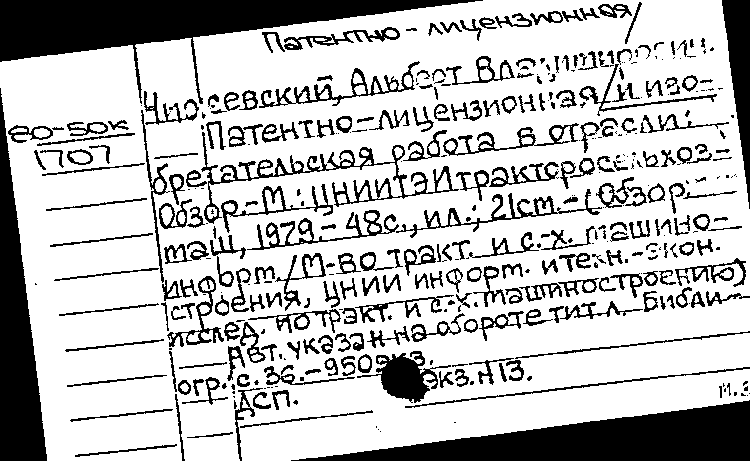 Патентно-лицензионная
80-50к
1707
Альберт Владимирович.
Патентно-лицензионная и изо-
бретательская работа в отрасли:
Обзор.-М.: ЦНИИТЭИтракторосельхоз-
маш, 1979.- 48с., ил.; 21см.-(Обзор.
информ./М-во тракт. и с.-х. машино-
строения, ЦНИИ информ. и техн.-экон.
исслед. по тракт. и с.-х. машиностроению)
Авт. указан на обороте тит. л. Библи-
огр.: с.36.-950экз.
ДСП. Экз.N13.